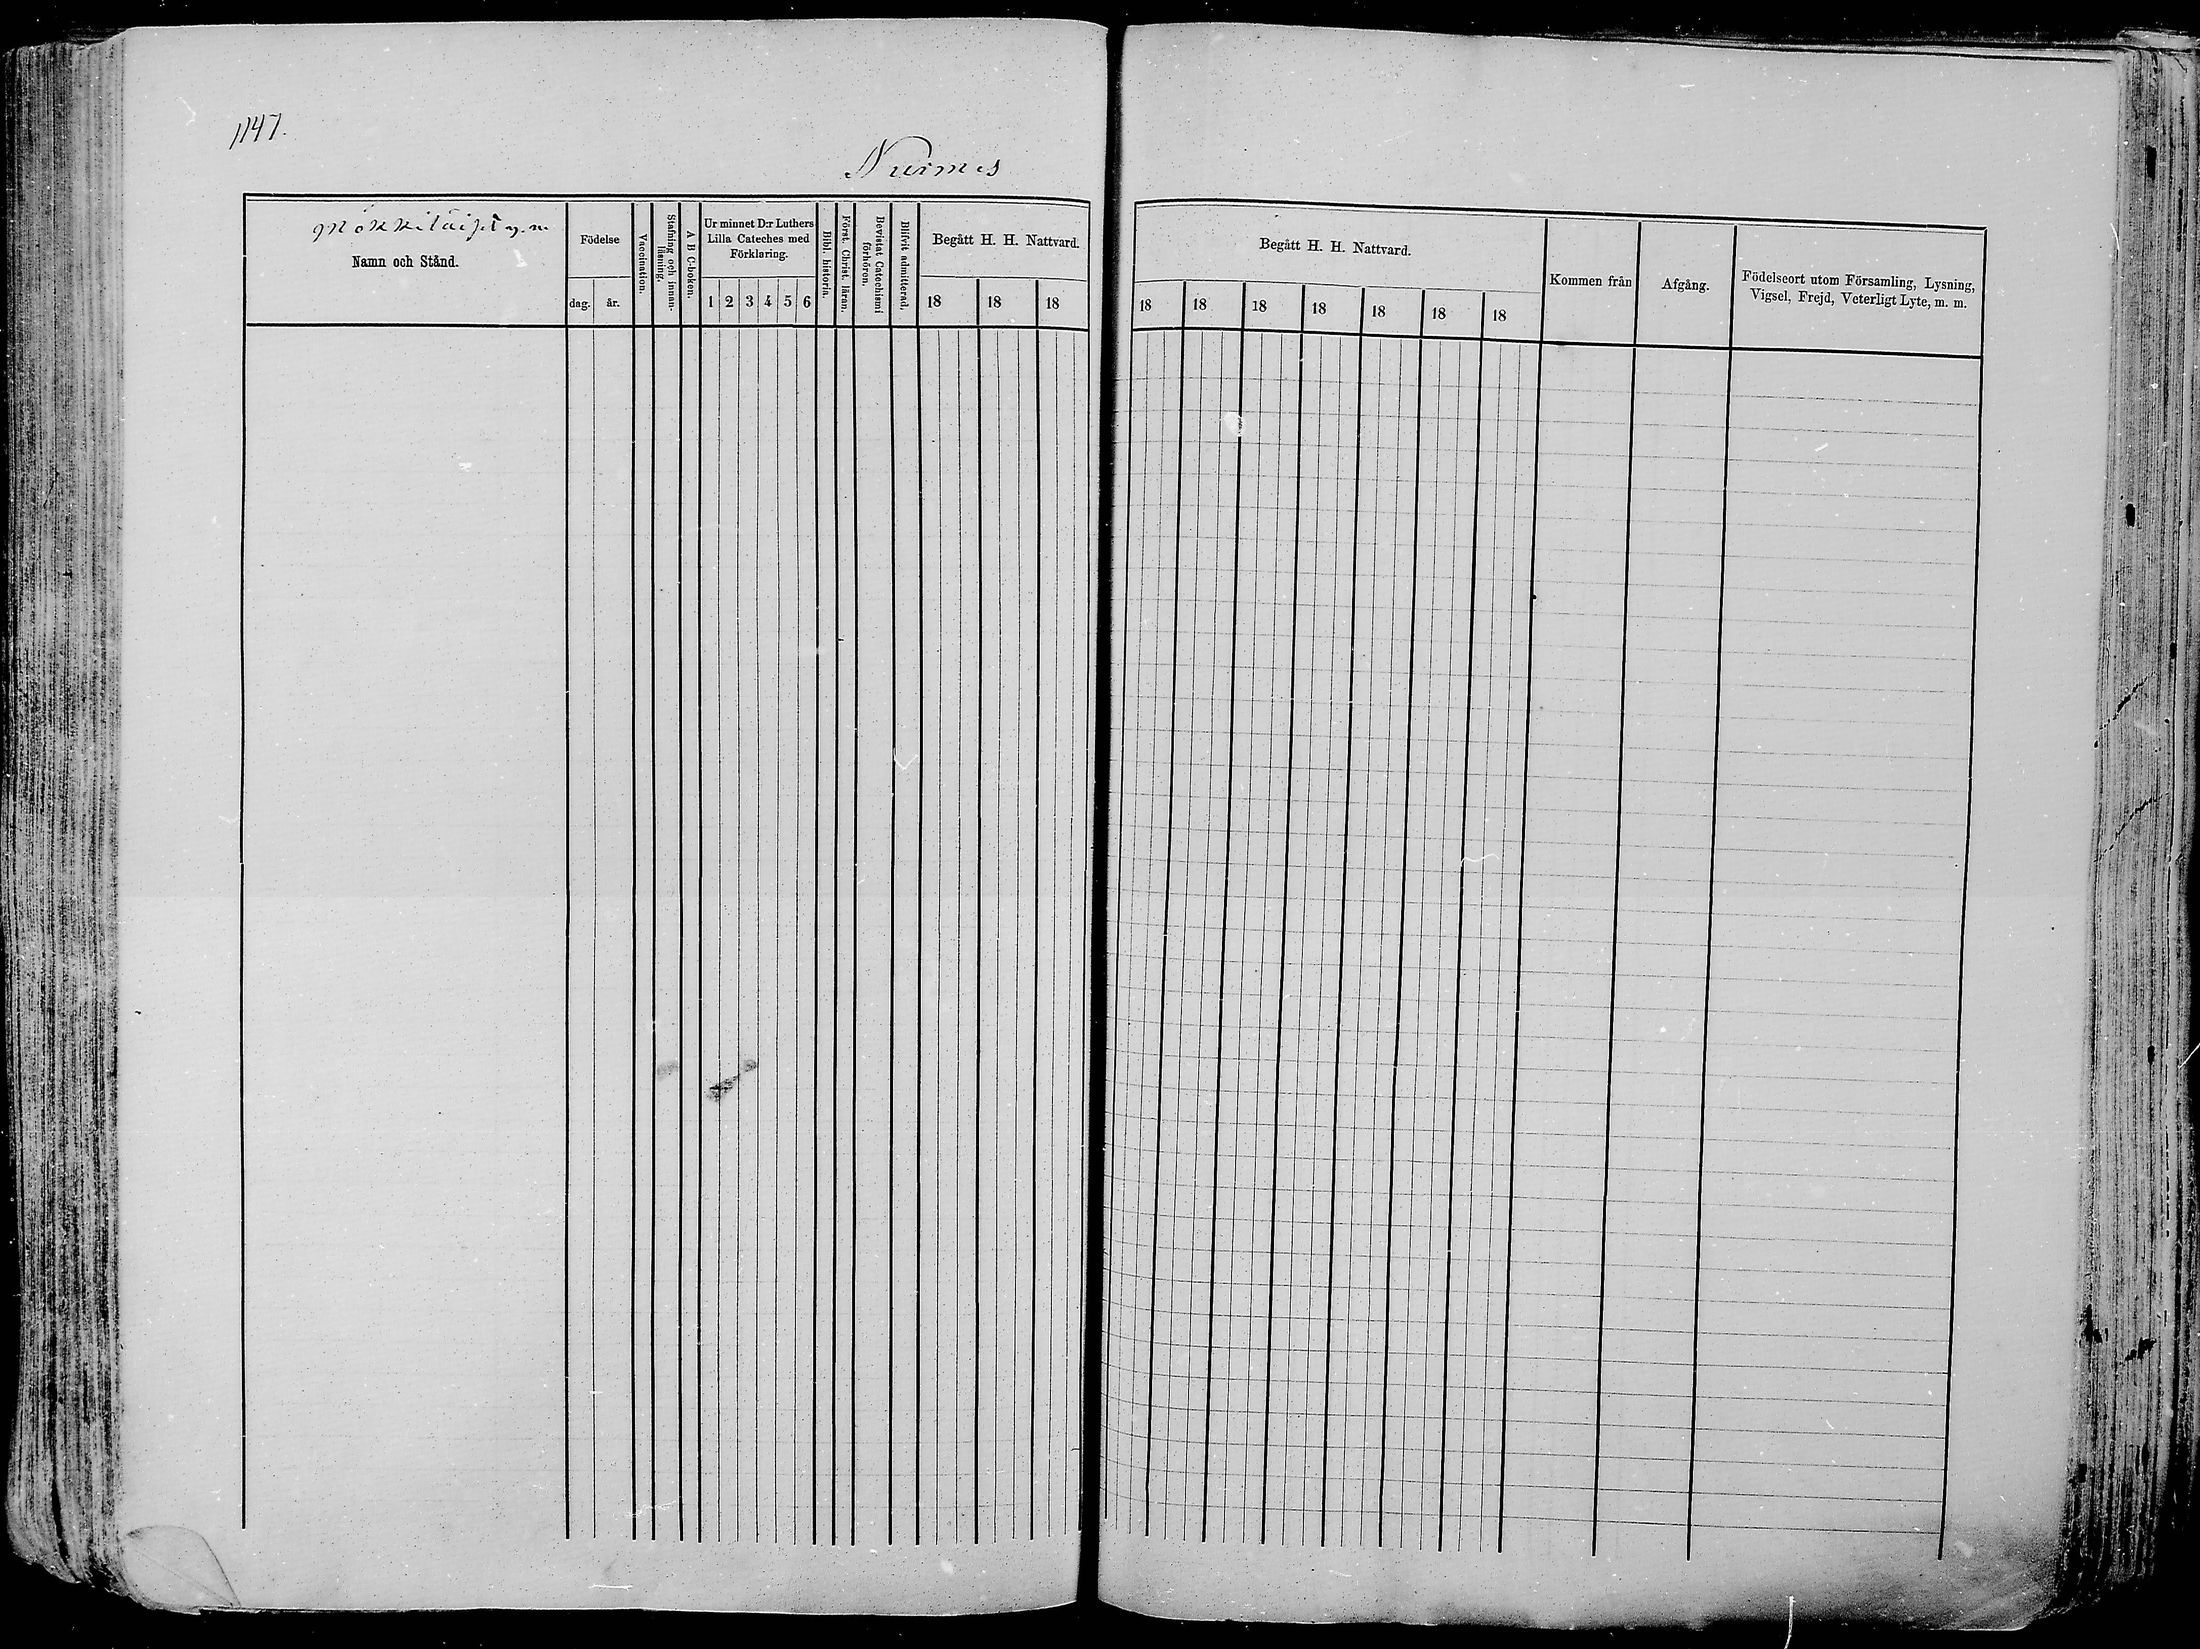 1147.
Nurmes
Namn och Stånd.
Födelse
dag.
år.
Vaccination.
Stafning och innan-
läsning.
A B C-boken.
Ur minnet D:r Luthers
Lilla Cateches med
Förklaring.
1 2 3 4 5 6
Bibl. historia.
Först. Christ. läran.
Bevistat Catechismi
förhören.
Blifvit admitterad.
Begått H. H. Nattvard.
18 18 18
Begått H. H. Nattvard.
18 18 18 18 18 18 18
Kommen från
Afgång.
Födelseort utom Församling, Lysning,
Vigsel, Frejd, Veterligt Lyte, m. m.